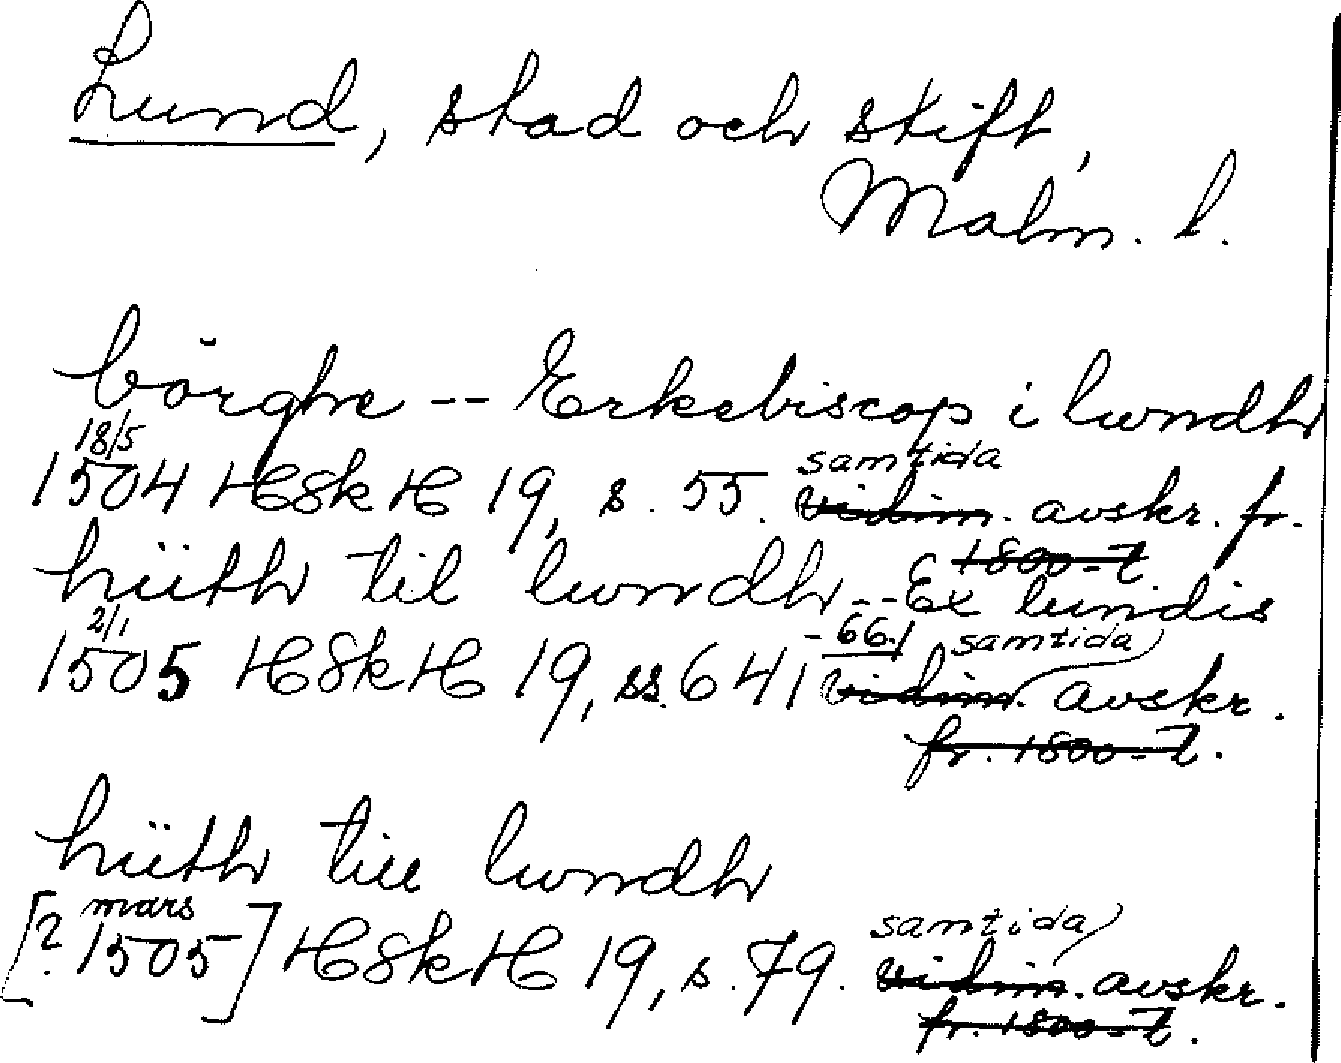 Lund, stad och skift,
Malm. l.
börghe -- Erkebiscop i lwndh
18/5 samtida
1504 HSkH 19, s. 55. vidim. avskr. fr.
1800-t.
hiith til lwndh -- Ex lundis
2/1 -66./ samtida
1505 HSkH 19, ss. 641 vidim. avskr.
fr. 1800-t.
hiith till lwndh
mars samtida
[? 1505] HSkH 19, s. 79. vidim. avskr.
fr. 1800-t.